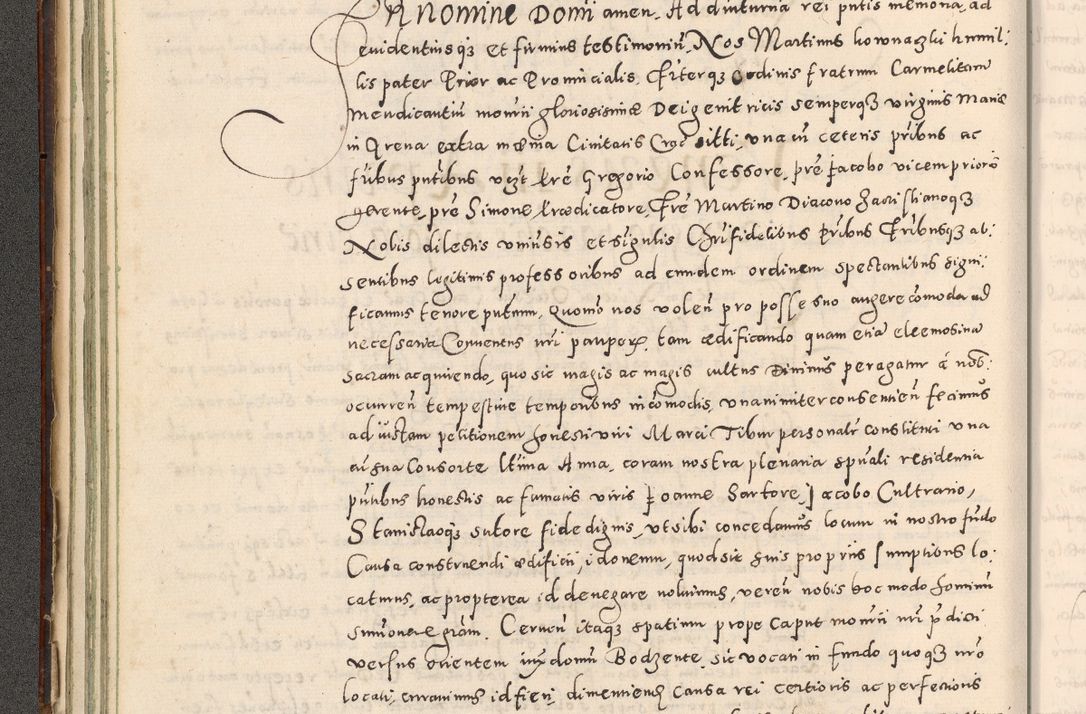 In nomine Domi amen. Ad diuturna rei pntis memoria, ad
euidentiusq3 et firmius testimoniū, Nos Martinus kownaczki humil:
lis pater Prior ac Prouincialis, frīterq3 ordinis fratrum Carmelitarū
Mendicantiū monrīi gloriosissimæ Deigenitricis semperq3 virginis Mariæ
in Arena extra mœnia Ciuitatis Crac sitti, vna cū ceteris prībus ac
frībus pntībus vczt frē Gregorio Confessore, prē Jacobo vicem prioris
gerente, prē Simone prædicatore, frē Martino Diacono Zacristianoq3
Nobis dilectis vniuīsis et sigulis Chrīfidelibus prībus frībusq3 ab:
sentibus legitimis professoribus ad eundem ordinem spectantibus signi:
ficamus tenore pntium, Quomō nos volen̄ pro posse suo augere cōmoda ad
necessaria Conuentus nrī pauper, tam ædificando quam etiā eleemosina
sacram acquirendo, quo sic magis ac magis cultus Diuinus peragatur a nob
ocurren̄ tempestiue temporibus incōmodis, vnanimiter consentien̄ fecimus
ad iustam petitionem honesti viri Marci Tibur personalr̄ constituti vna
cū sua Consorte ltima Anna, coram nostra plenaria spūali residentia
pntībus honestis ac famatis viris Joanne Sartore, Jacobo Cultrario,
Stanislaoq3 sutore fide dignis, vt sibi concedamus locum in nostro fūdo
Causa construendi ædificii, idoneum, quod sic suis propriis sumptibus lo:
catmus, ac propterea id denegare noluimus, verēn nobis hoc modo hominū
simīone grām. Cernen̄ itaq3 spatium prope caput monrīi nrī p̄dicti
versus orientem inṙ domū Bodzente, sic vocati in fundo quoq3 nrō
locati, errauimus id fieri, dimentiens causa rei certioris ac perfectioris